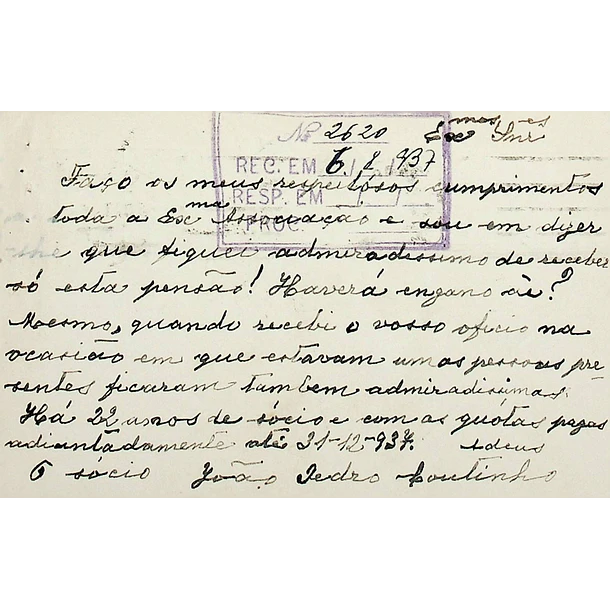 Nº 2620 Ex mos Snr es
REC. EM 6/8/937
Faço os meus respeitosos cumprimentos
RESP. EM / /
toda a Ex ma Associação e sou em dizer
PROC.
que fiquei admiradissimo de receber
só esta pensão! Haverá engano ài?
Mesmo, quando recebi o vosso oficio na
ocasião em que estavam umas pessoas pre
sentes ficaram tambem admiradissimas
Há 22 anos de sócio e com as quotas pagas
adiantadamente até 31-12-937. Adeus
O sócio João Pedro Coutinho